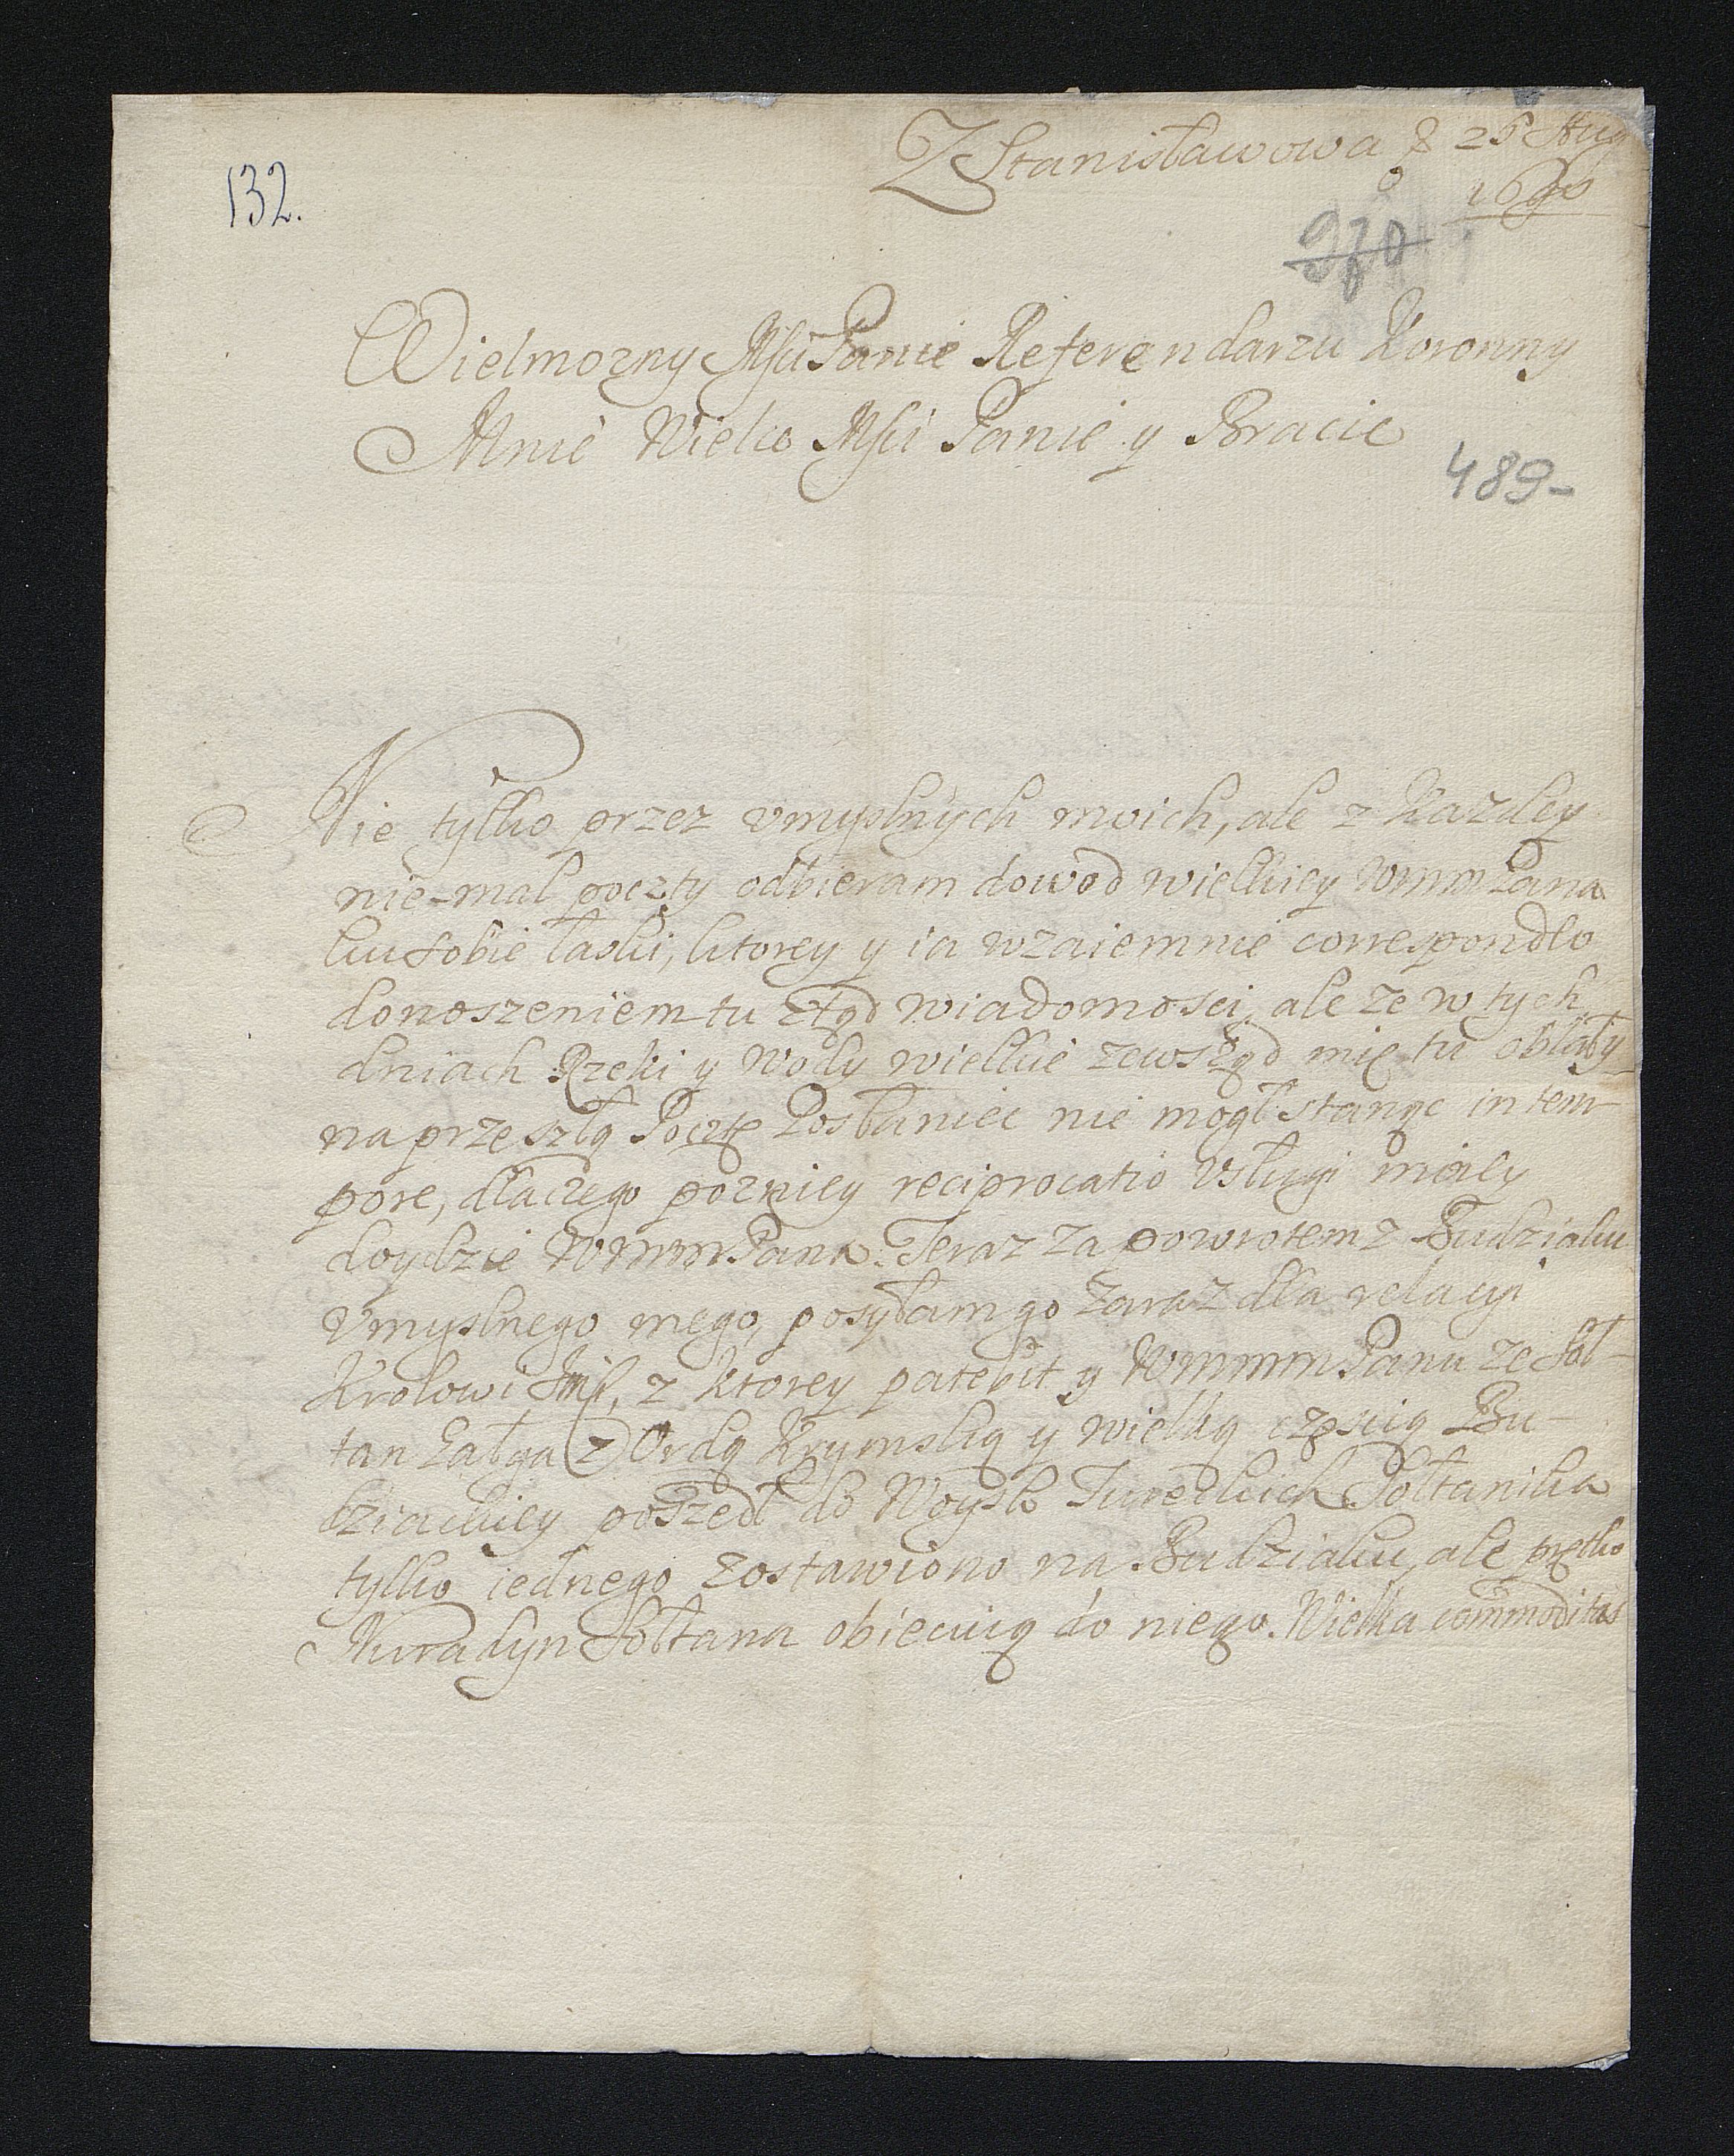 132.
Z Stanisławowa d 26 Aug
1690
970
Wielmozny Mści Panie Referendarzu Koronny
Mnie Wielce Mści Panie y Bracie
489-
Nie tylko przez vmyslnych moich, ale z Kazdey
nie-mal poczty odbieram dowod wielkiey WmmPana
ku sobie łaski, ktorey y ia wzaiemnie correspondeo
donoszeniem tu ztąd wiadomosci, ale ze w tych
dniach Rzeki y Wody wielkie zewsząd mię tu oblały
na przeszłą Pocztę Posłaniec nie mogł stanąc in tem-
pore, dlaczego pozniey reciprocatio vsługi moiey
doydzie WmmPana. Teraz za powrotem z Budziaku
vmyslnego mego, posyłam go zaraz dla relacyi
Krolowi Jmsc, z ktorey patebit y WmmmPanu ze Soł-
tan Gałga z Ordą Krymską y wielką częscią Bu-
dziackiey poszedł do Woysk Tureckich Sołtanika
tylko iednego zostawiono na Budziaku, ale prętko
Nuradyn Sołtana obiecuią do niego. Wielka commoditas